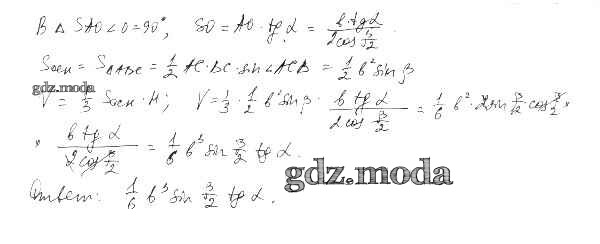 В △ SAO ∠O = 90°, SO = AO · tg α = (b · tg α)/(2cos β/2).
Sосн = S△ABC = 1/2 AC · BC · sin ∠ACB = 1/2 b² sin β
gdz.moda
V = 1/3 Sосн · H; V = 1/3 · 1/2 b² sin β · (b tg α)/(2 cos β/2) = 1/6 b² · 2 sin β/2 · cos β/2 ×
× (b tg α)/(2 cos β/2) = 1/6 b³ sin β/2 tg α.
gdz.moda
Ответ: 1/6 b³ sin β/2 tg α.